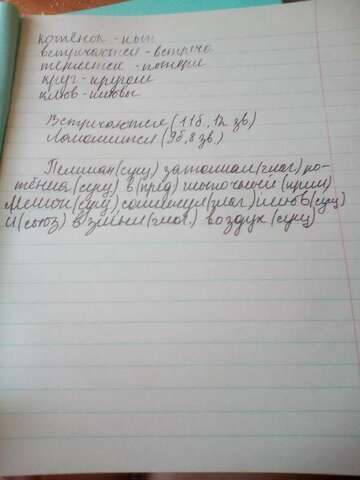 котёнок - кот
встречаются - встреча
теряется - потери
круг - кругом
клюв - клювы
Встречаются (11б, 12 зв,)
Ломомится (9б, 8 зв.)
Пеликан (сущ) затолкал (глаг) ко-
тёнка (сущ) в (пред) мешочный (прил)
Мешок (сущ) сомкнул (глаг.) клюв (сущ)
И (союз) взмыл (глаг.) воздух (сущ)